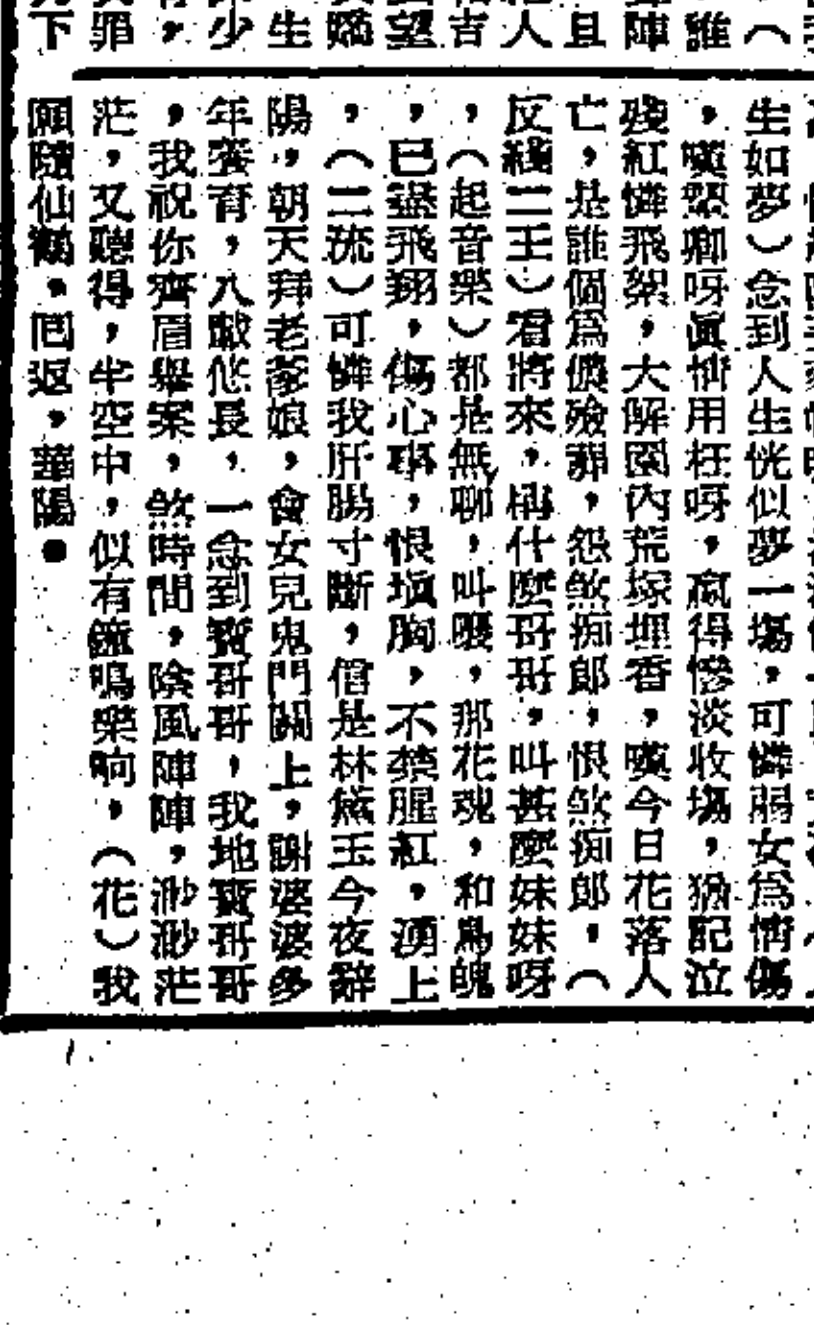 生如夢)念到人生恍似夢一塲,可憐弱女爲情傷
,嘆顰卿呀眞情用枉呀,贏得慘淡收塲,猶記泣
殘紅憐飛絮,大觧園內荒塚埋香,嘆今日花落人
亡,是誰個爲儂殮葬,怨煞痴郎,恨煞痴郎,(
反綫二王)看將來,稱什麼哥哥,叫甚麽妹妹呀
,(起音樂)都是無聊,叫噯,那花魂,和鳥魄
,已盡飛翔,傷心事,恨塡胸,不禁腥紅,湧上
,(二流)可憐我肝腸寸斷,信是林黛玉今夜辭
陽,朝天拜老爹娘,會女兒鬼門關上,謝婆婆多
年養育,八載恁長,一念到寶哥哥,我地寶哥哥
,我祝你齊眉舉案,煞時間,陰風陣陣,渺渺茫
茫,又聽得,半空中,似有鐘鳴樂响,(花)我
願隨仙鶴,囘返,華陽●